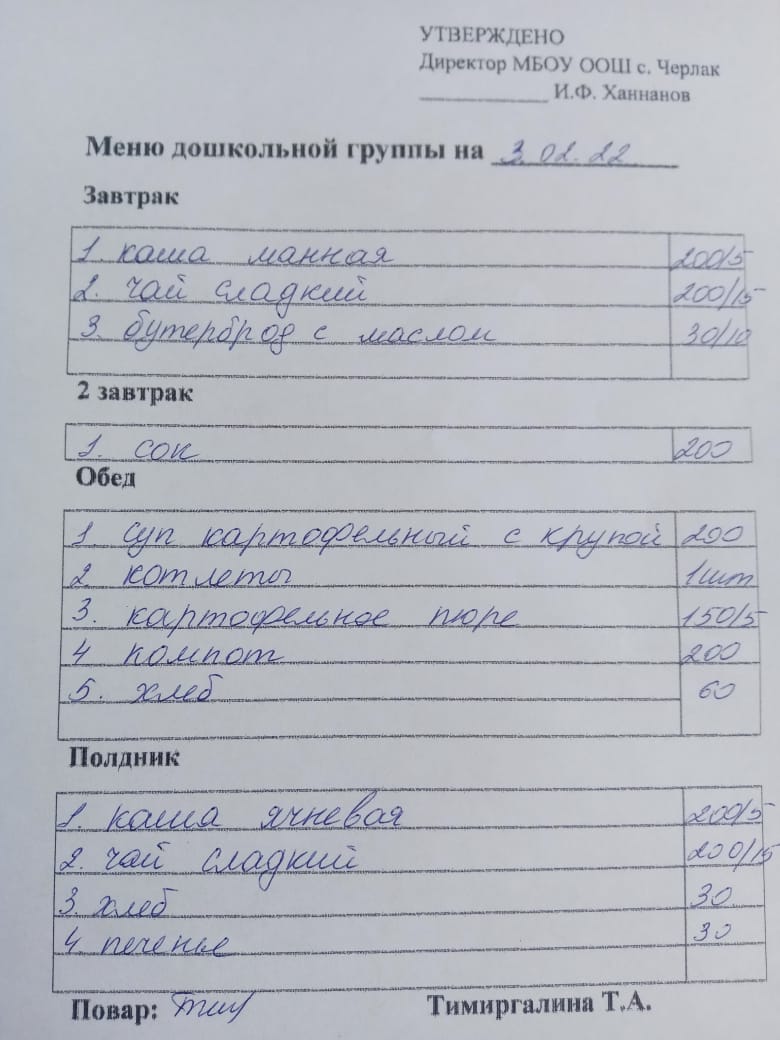 УТВЕРЖДЕНО
Директор МБОУ ООШ с. Черлак
____________ И.Ф. Ханнанов
Меню дошкольной группы на 3.02.22
Завтрак
1. каша манная 200/5
2. чай сладкий 200/15
3. бутерброд с маслом 30/10
2 завтрак
1. сок 200
Обед
1. суп картофельный с крупой 200
2 котлеты 1шт
3. картофельное пюре 150/5
4 компот 200
5. хлеб 60
Полдник
1. каша ячневая 200/5
2. чай сладкий 200/15
3. хлеб 30
4. печенье 30
Повар: Тимиргалина Т.А.